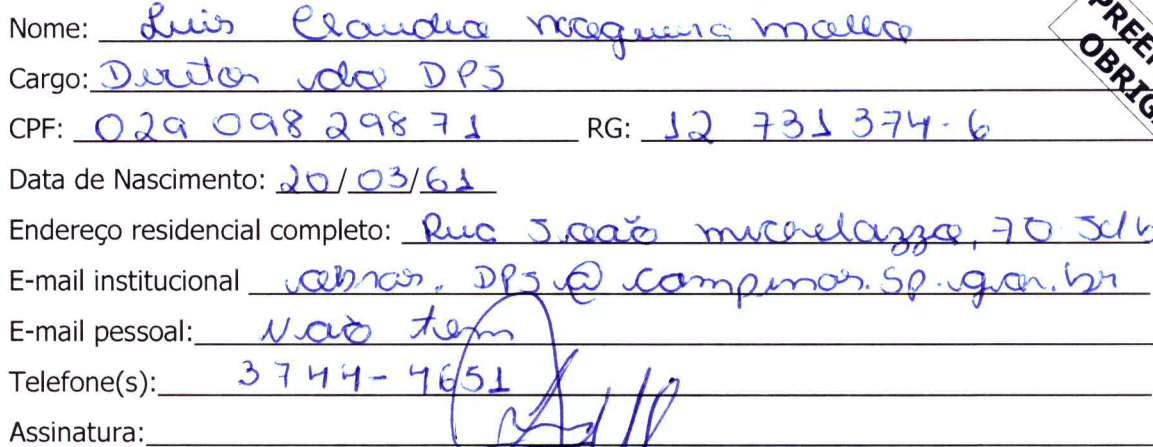 Nome: Luis Claudio Nogueira Mello
PREEN
OBRIGA
Cargo: Diretor do DPJ
CPF: 029 098 298 71 RG: 12 731 374-6
Data de Nascimento: 20/03/61
Endereço residencial completo: Rua João 70
E-mail institucional obras. DPJ @ campinas.sp.gov.br
E-mail pessoal: Não tem
Telefone(s): 3744-4651
Assinatura: